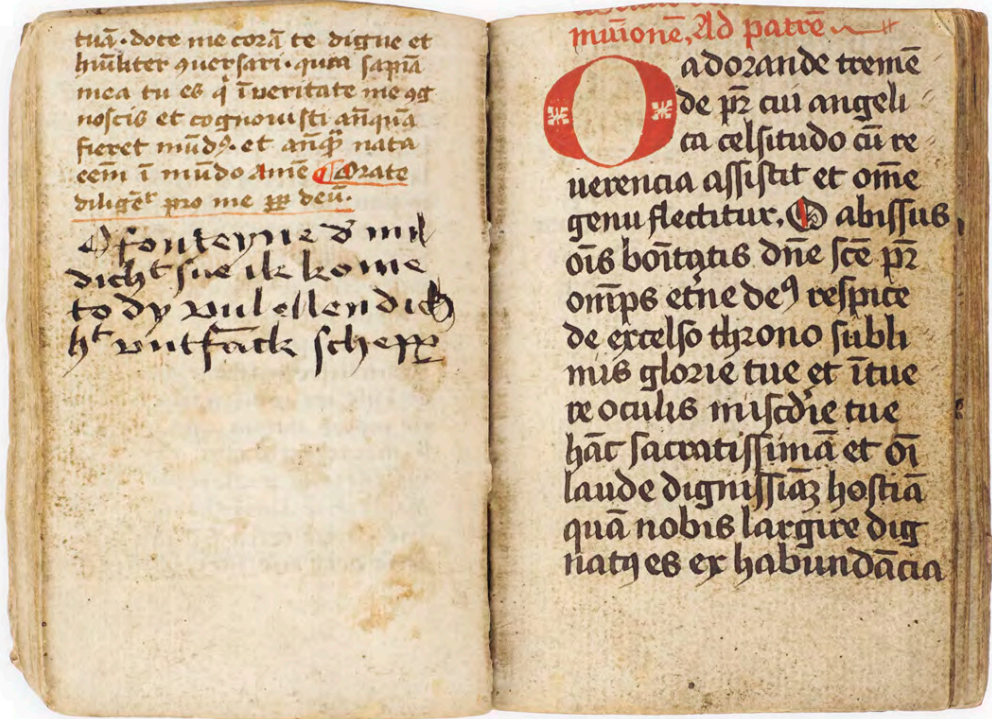 tuā · doce me corā te digne et
hūīliter ꝯuersari · quia sapīa
mea tu es q̇ ī ueritate me ꝯg
noscis et cognouisti añquā
fieret mūdꝰ · et añqꝫ nata
eēm ī mūdo Amē Orate
diligēt pro me ꝑꝑ deū ·
O fonteyne d' mil
dicht sue ik kome
to dy vul ellendich
ht vntfāck
miūionē, Ad patrē
O adorande tremē
de pr̄ cui angeli
ca celsitudo cū re
uerencia assistit et om̄e
genu flectitur, O abissus
oīs boītatis dn̄e sc̄e pr̄
om̄ps et̄ne deꝰ respice
de excelso throno subli
mis glorie tue et ītue
re oculis mis̄cdie tue
hāc sacratissimā et oī
laude dignissiāꝫ hostiā
quā nobis largire dig
natꝰ es ex habundācia